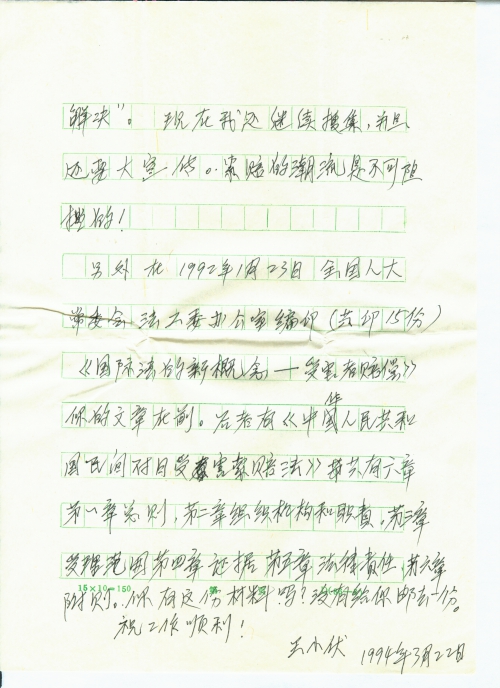 解决”。 现在我还继续搜集,并且
还要大宣传。索赔的潮流是不可阻
挡的!
另外在1992年1月23日全国人大
常委会法工委办公室编印(共印15份)
《国际法的新概念—受害者赔偿》
你的文章在前。后者有《中华
国人民共和
国民间对日受害索赔法》共有六章
第一章总则,第二章组织机构和职责,第三章
受理范围第四章证据第五章法律责任,第六章
15×10=150
附则。你有这份材料吗?没有给你邮去一份。
祝工作顺利!
王小伏 1994年3月22日